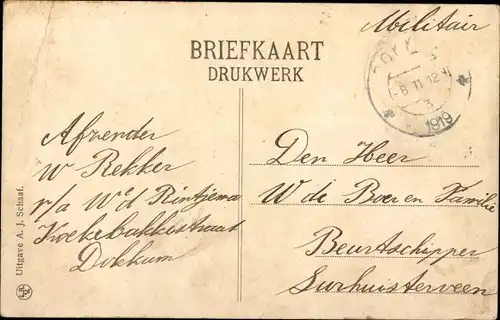 Militair
BRIEFKAART
DRUKWERK
DOKK
8 11 12
1919
Afzender
W Rekker
p/a We d Rintjema
Koekebakkestraat
Dokkum
Den Heer
W de Boer en Familie
Beurtschipper
Surhuisterveen
Uitgave A. J. Schaaf.